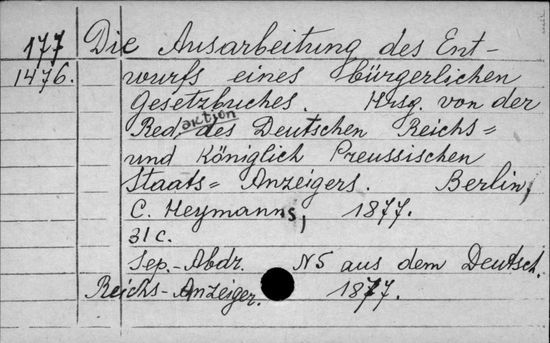 177 Die Ausarbeitung des Ent-
1476. wurfs eines bürgerlichen
Gesetzbuches. Hrsg. von der
Redaktion des Deutschen Reichs=
und Königlich Preussischen
Staats= Anzeigers. Berlin,
C. Heymanns, 1877.
31 c.
Sep.-Abdr. N5 aus dem Deutsch.
Reichs-Anzeiger. 1877.